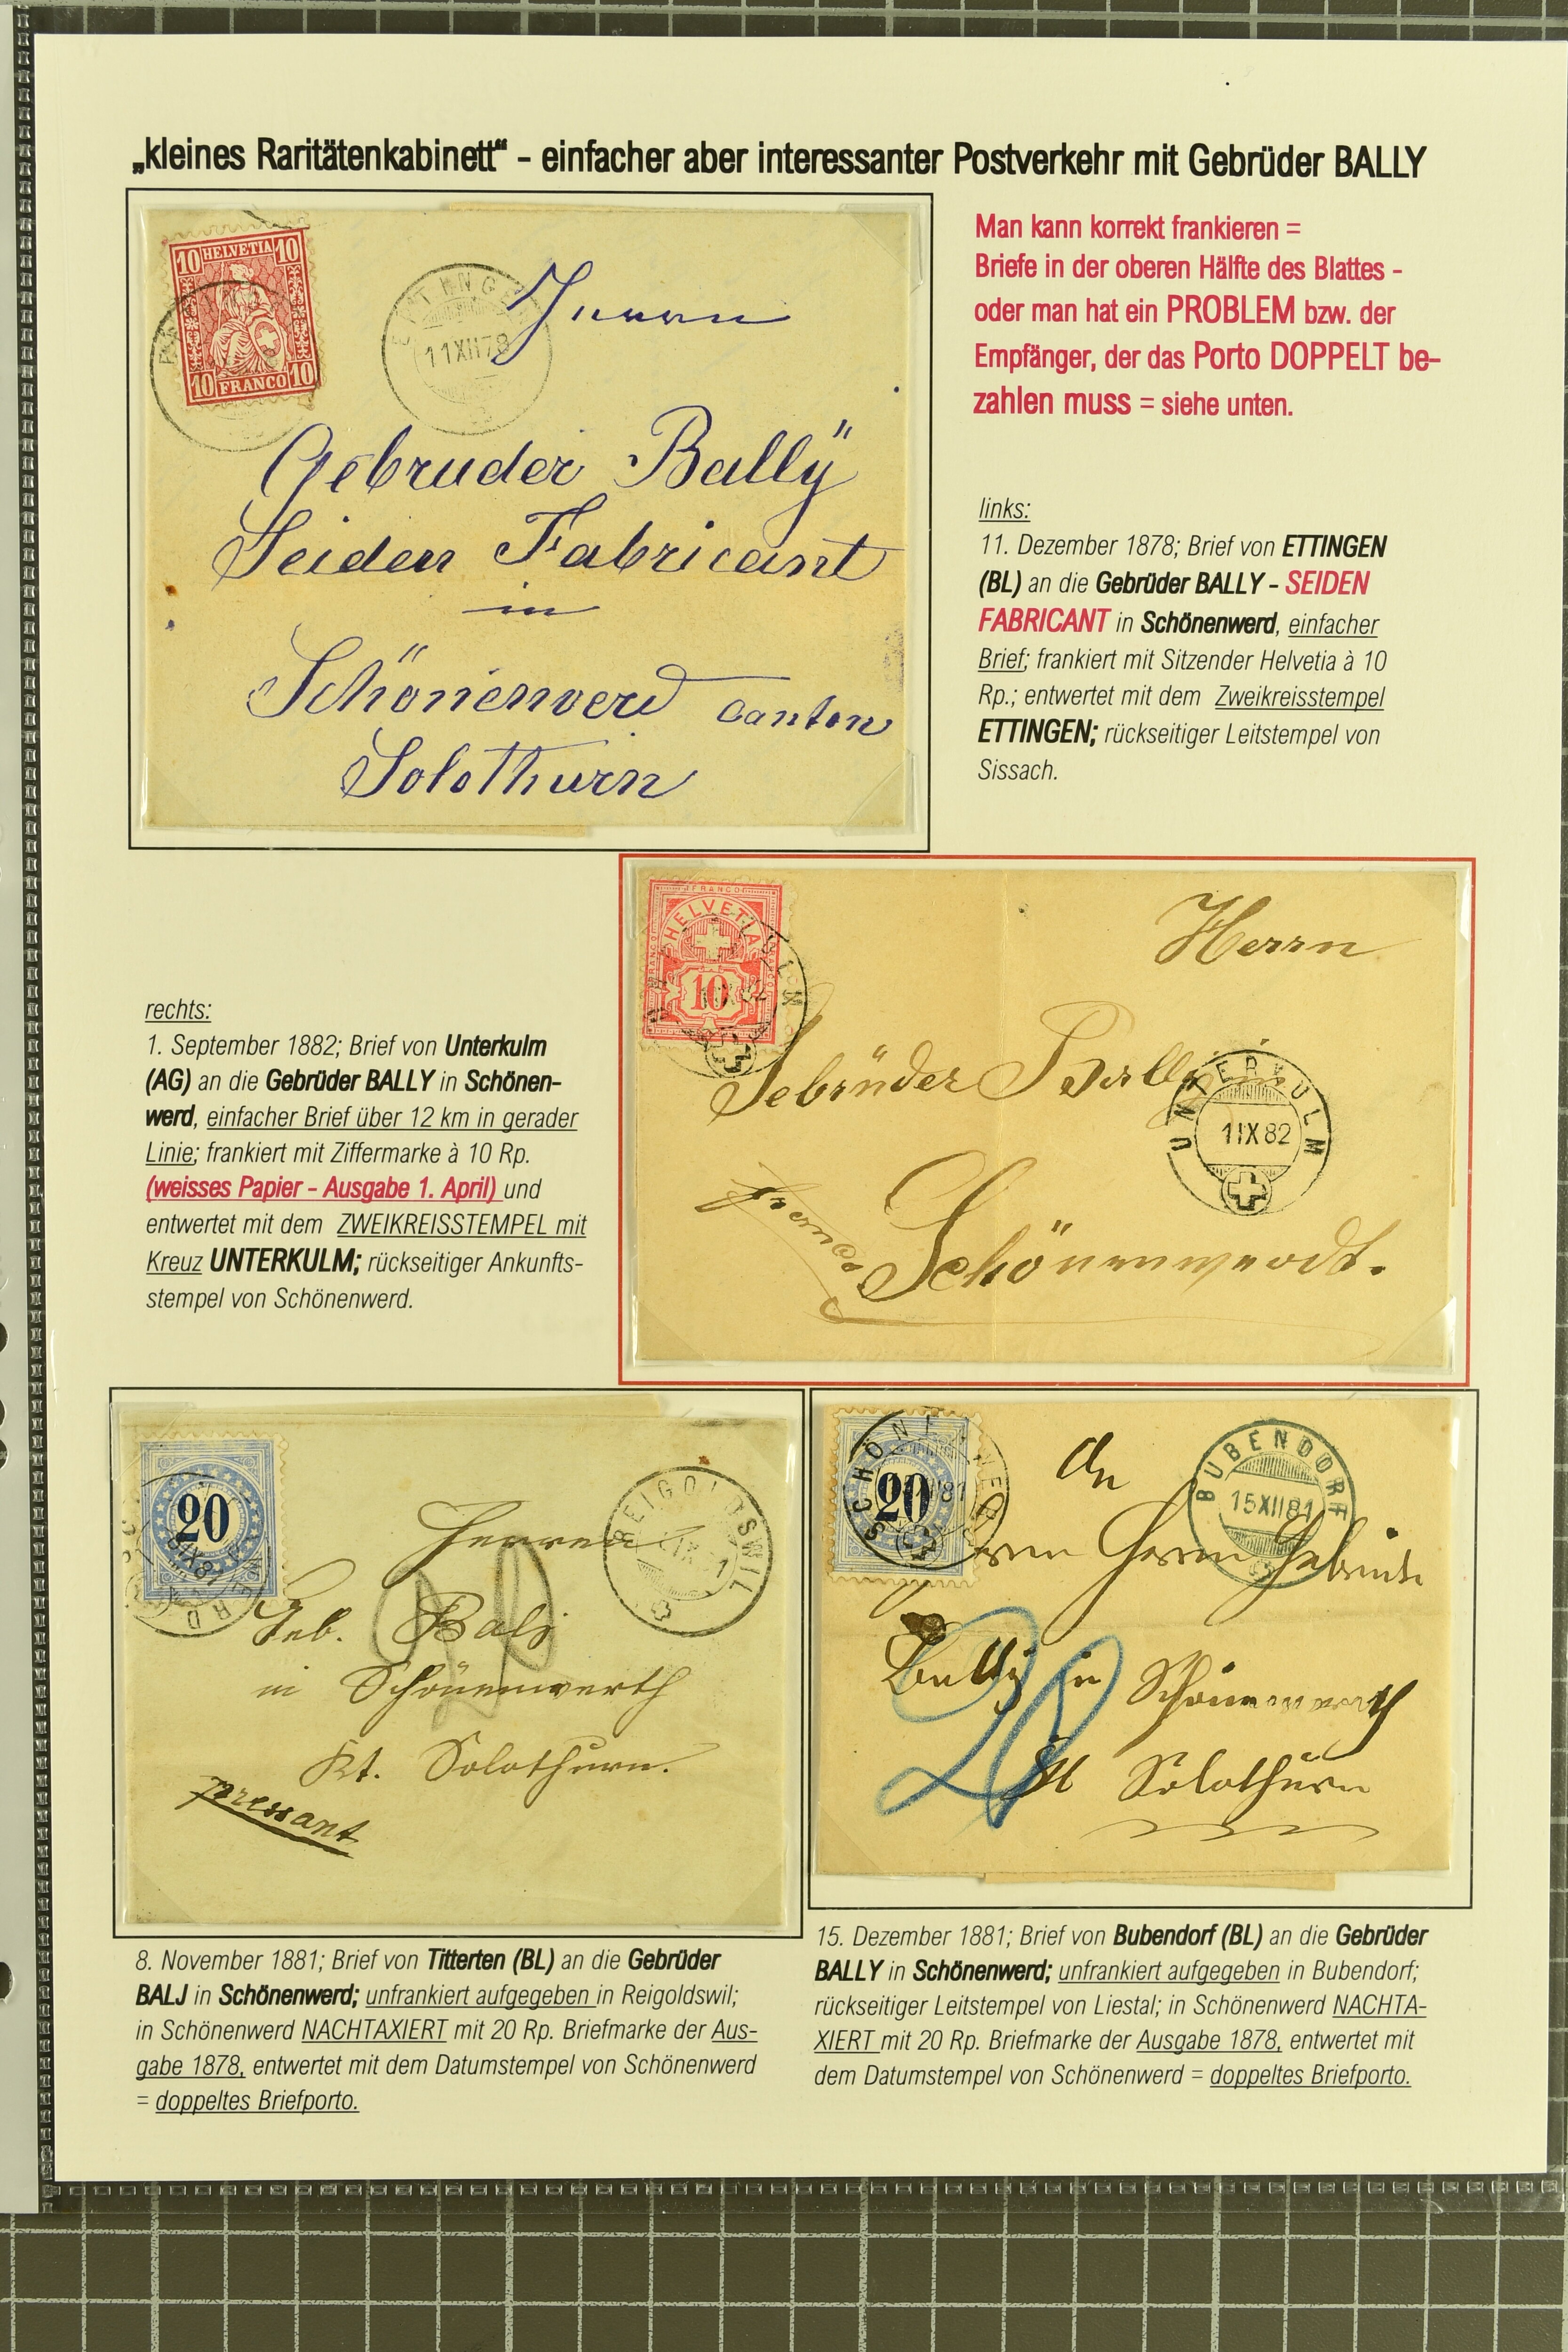 „kleines Raritätenkabinett“ - einfacher aber interessanter Postverkehr mit Gebrüder BALLY
10 HELVETIA 10
10 FRANCO 10
ETTINGEN
11 XII 78
Herrn
Gebruder Bally
Seiden Fabricant
in
Schönenwerd canton
Solothurn
Man kann korrekt frankieren =
Briefe in der oberen Hälfte des Blattes -
oder man hat ein PROBLEM bzw. der
Empfänger, der das Porto DOPPELT be-
zahlen muss = siehe unten.
links:
11. Dezember 1878; Brief von ETTINGEN
(BL) an die Gebrüder BALLY - SEIDEN
FABRICANT in Schönenwerd, einfacher
Brief; frankiert mit Sitzender Helvetia à 10
Rp.; entwertet mit dem Zweikreisstempel
ETTINGEN; rückseitiger Leitstempel von
Sissach.
rechts:
1. September 1882; Brief von Unterkulm
(AG) an die Gebrüder BALLY in Schönen-
werd, einfacher Brief über 12 km in gerader
Linie; frankiert mit Ziffermarke à 10 Rp.
(weisses Papier - Ausgabe 1. April) und
entwertet mit dem ZWEIKREISSTEMPEL mit
Kreuz UNTERKULM; rückseitiger Ankunfts-
stempel von Schönenwerd.
FRANCO
HELVETIA
10
Herrn
Gebrüder Bally in
UNTERKULM
1 IX 82
franco
Schönenwerdt.
20
8 XI 81
REIGOLDSWIL
Herren
Geb. Bali
in Schönenwerth
Kt. Solothurn.
pressant
20
20
SCHÖNENWERD
An
BUBENDORF
15 XII 81
Herren Gebrüder
Bally in Schönenwerth
Kt Solothurn
20
8. November 1881; Brief von Titterten (BL) an die Gebrüder
BALJ in Schönenwerd; unfrankiert aufgegeben in Reigoldswil;
in Schönenwerd NACHTAXIERT mit 20 Rp. Briefmarke der Aus-
gabe 1878, entwertet mit dem Datumstempel von Schönenwerd
= doppeltes Briefporto.
15. Dezember 1881; Brief von Bubendorf (BL) an die Gebrüder
BALLY in Schönenwerd; unfrankiert aufgegeben in Bubendorf;
rückseitiger Leitstempel von Liestal; in Schönenwerd NACHTA-
XIERT mit 20 Rp. Briefmarke der Ausgabe 1878, entwertet mit
dem Datumstempel von Schönenwerd = doppeltes Briefporto.